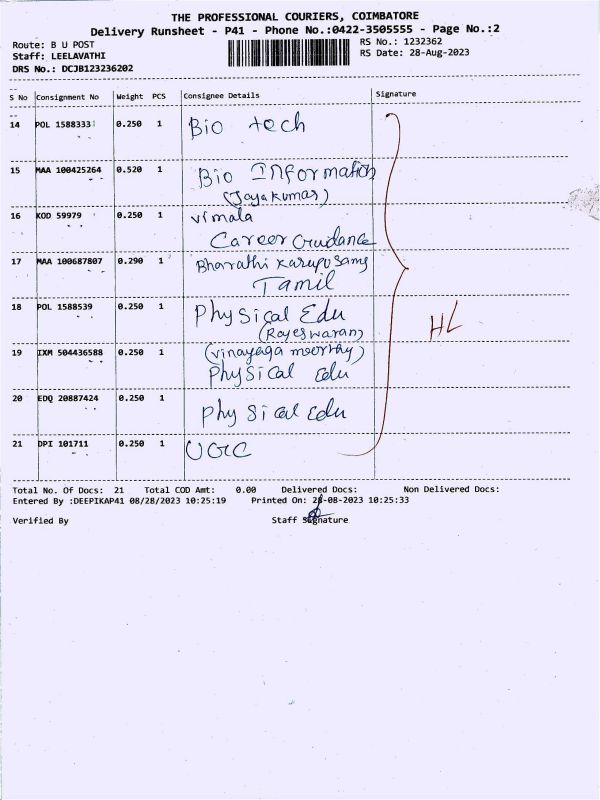 THE PROFESSIONAL COURIERS, COIMBATORE
Delivery Runsheet - P41 - Phone No.:0422-3505555 - Page No.:2
Route: B U POST
RS No.: 1232362
Staff: LEELAVATHI
RS Date: 28-Aug-2023
DRS No.: DCJB123236202
S No Consignment No Weight PCS Consignee Details Signature
14 POL 1588333 0.250 1 Bio tech
15 MAA 100425264 0.520 1 Bio Information
(Jayakumar)
16 KOD 59979 0.250 1 vimala
Career Guidance
17 MAA 100687807 0.290 1 Bharathi Karupusamy
Tamil
18 POL 1588539 0.250 1 Physical Edu
(Rajeswaran)
HL
19 IXM 504436588 0.250 1 (vinayaga moorthy)
Physical Edu
20 EDQ 20887424 0.250 1 Physical Edu
21 DPI 101711 0.250 1 UGC
Total No. Of Docs: 21 Total COD Amt: 0.00 Delivered Docs: Non Delivered Docs:
Entered By :DEEPIKAP41 08/28/2023 10:25:19 Printed On: 28-08-2023 10:25:33
Verified By Staff Signature